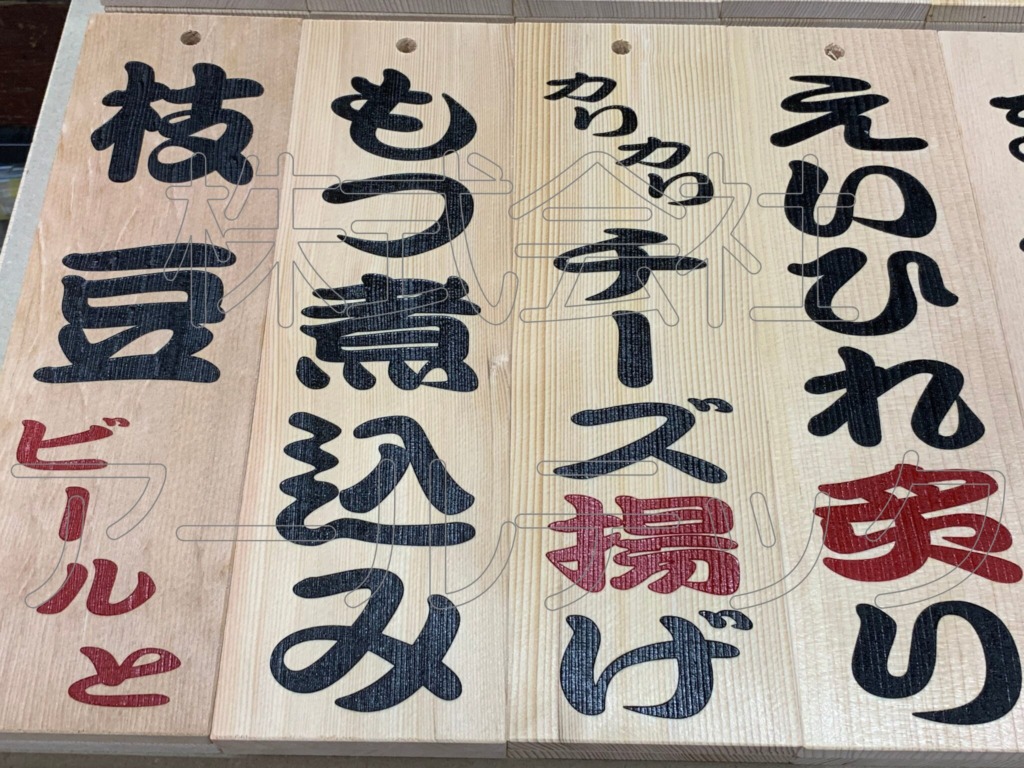 えいひれ炙り
カリカリチーズ揚げ
もつ煮込み
枝豆ビールと
株式会社